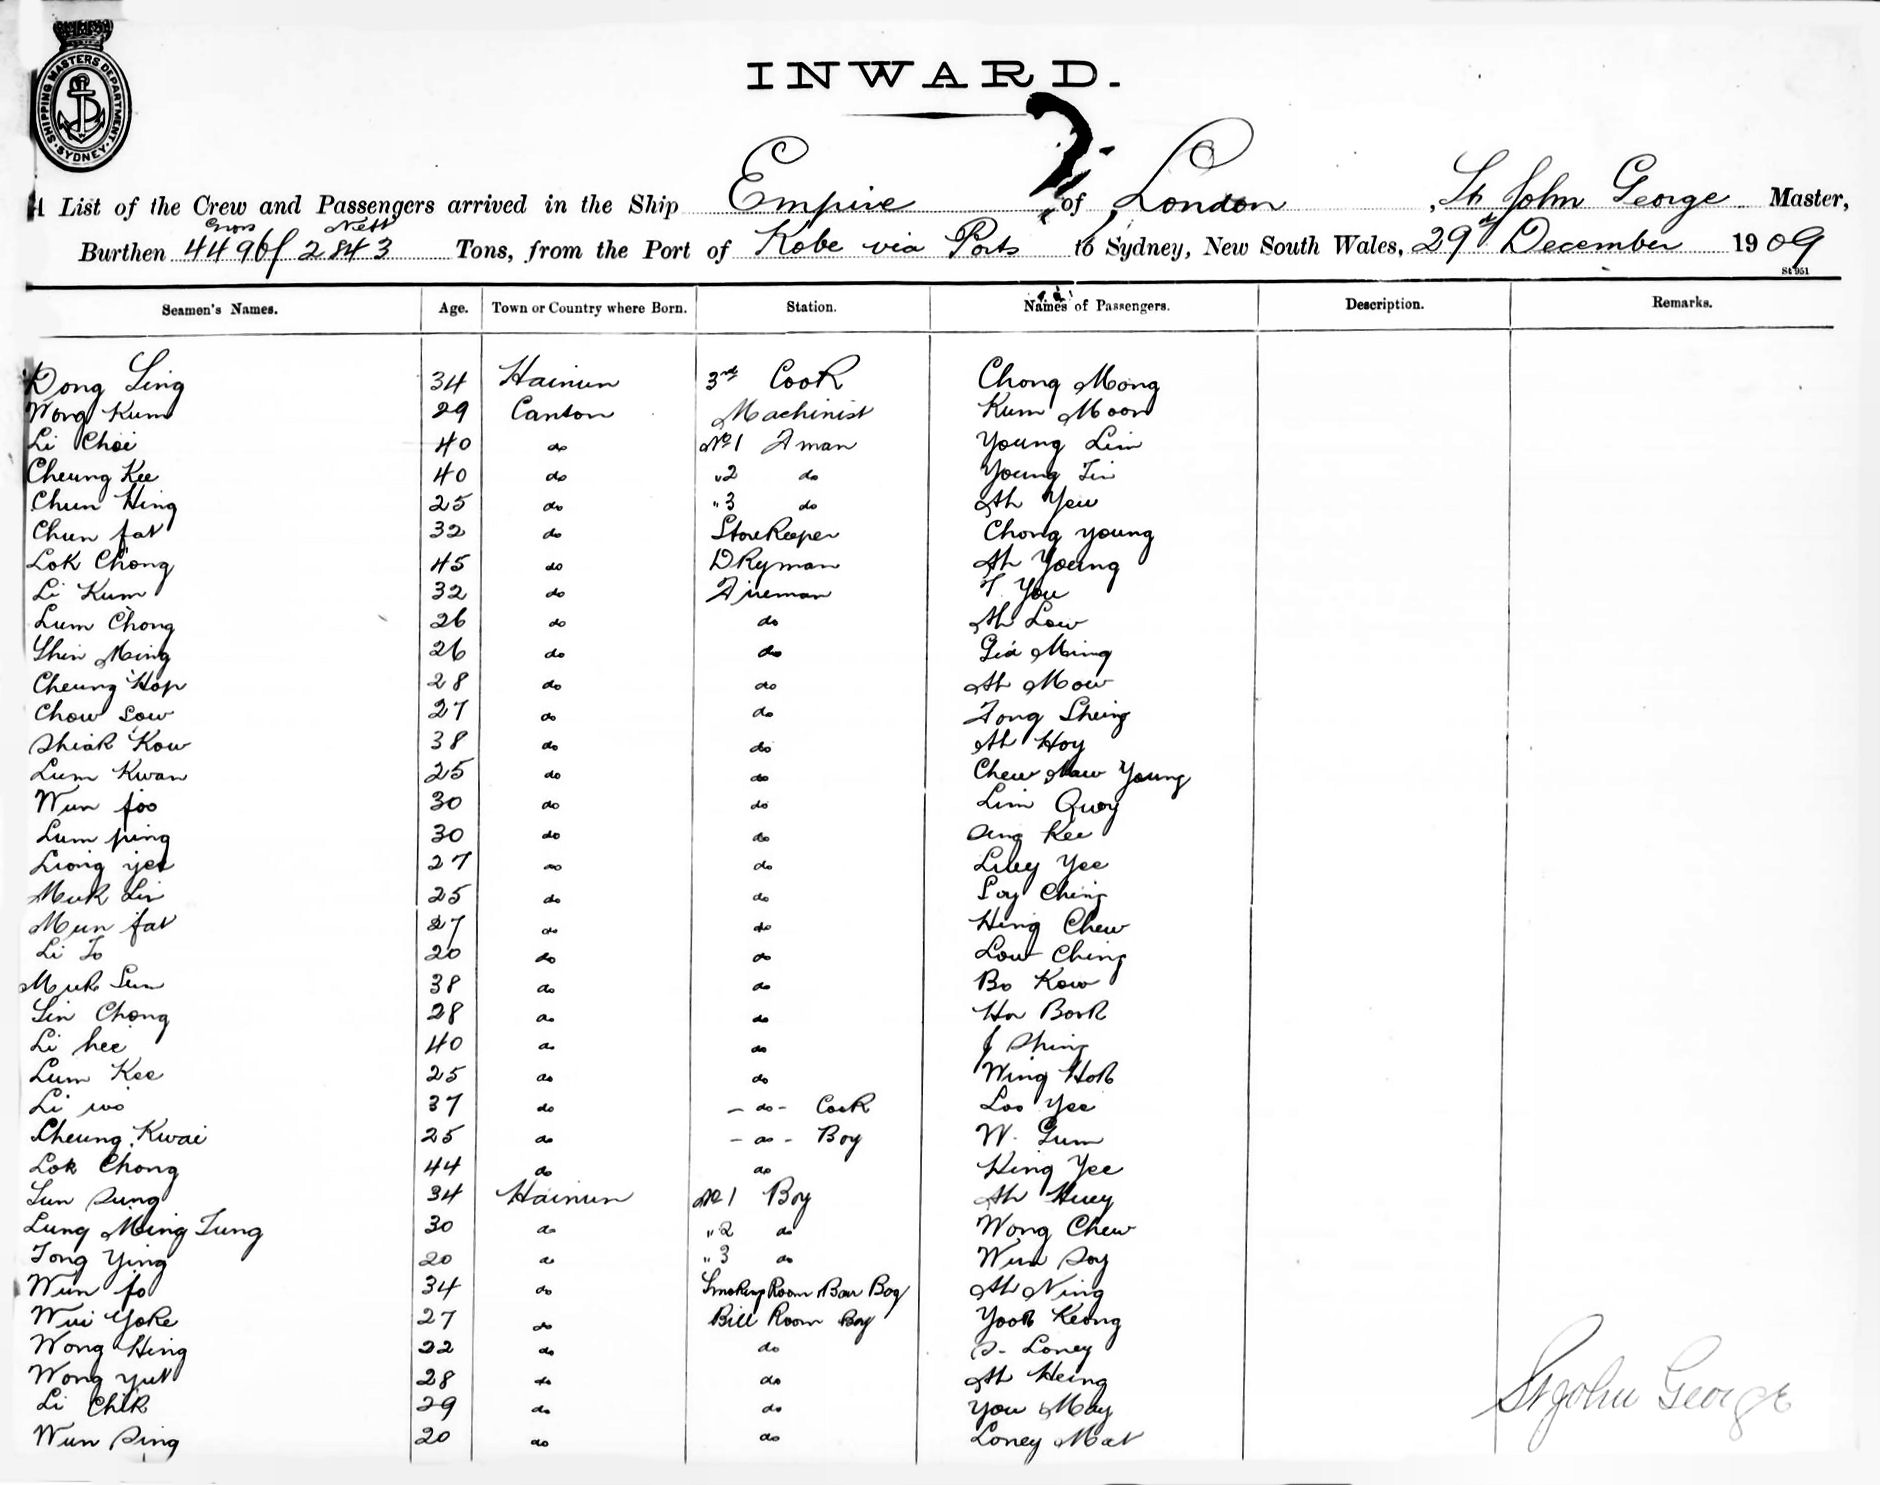 SHIPPING MASTERS DEPARTMENT · SYDNEY ·
INWARD.
A List of the Crew and Passengers arrived in the Ship Empire of London, St John George Master,
Gross Nett
Burthen 4496 / 2843 Tons, from the Port of Kobe via Ports to Sydney, New South Wales, 29th December 1909
St 951
Seamen's Names. Age. Town or Country where Born. Station. Names of Passengers. Description. Remarks.
Dong Sing 34 Hainun 3rd Cook Chong Mong
Wong Kum 29 Canton Machinist Kum Moon
Li Choi 40 do No 1 Fman Young Lim
Cheung Kee 40 do " 2 do Young Tin
Chun Hing 25 do " 3 do Ah Yew
Chun fat 32 do Storekeeper Chong young
Lok Chong 45 do DKyman Ah Young
Li Kum 32 do Fireman T. You
Lum Chong 26 do do Ah Low
Shin Ming 26 do do Gid Ming
Cheung Hop 28 do do Ah Mow
Chow Sow 27 do do Fong Sheing
Shiak Kow 38 do do Ah Hoy
Lum Kwan 25 do do Chew Maw Young
Wun foo 30 do do Lim Quoy
Lum ping 30 do do Ang Kee
Liong yet 27 do do Liley Yee
Muk Lin 25 do do Soy Ching
Mun fat 27 do do Hing Chew
Li To 20 do do Low Ching
Muk Sun 38 do do Bo Kow
Sin Chong 28 do do Ho Book
Li hee 40 do do J Shing
Lum Kee 25 do do Wing Hok
Li wo 37 do - do - Cook Loo Yee
Cheung Kwai 25 do - do - Boy W. Gum
Lok Chong 44 do do Hing Yee
Sun Sung 34 Hainun No 1 Boy Ah Huey
Lung Ming Tung 30 do " 2 do Wong Chew
Tong Ying 20 do " 3 do Wun Soy
Wun fo 34 do Smoking Room Bar Boy Ah Ning
Wui Yoke 27 do Bill Room Boy Yook Keong
Wong Hing 22 do do S. Loney
Wong yut 28 do do Ah Heing
Li Chik 29 do do You May
Wun Sing 20 do do Loney Mat
St John George